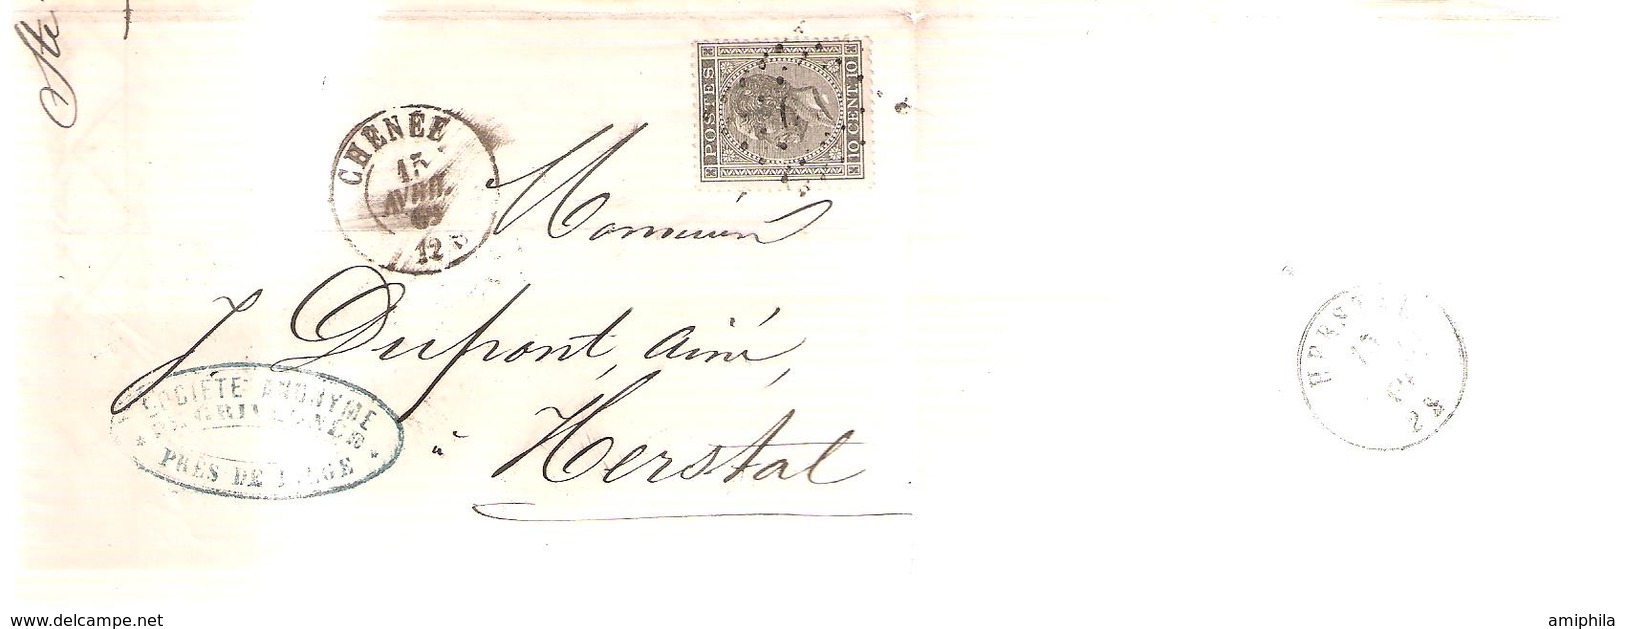 Ste
POSTES
10 CENT. 10
CHENÉE
15
AVRIL
12
Monsieur
J. Dupont, ainé,
à Herstal
SOCIÉTÉ ANONYME
PRÈS DE LIÈGE
2
www.delcampe.net
amiphila